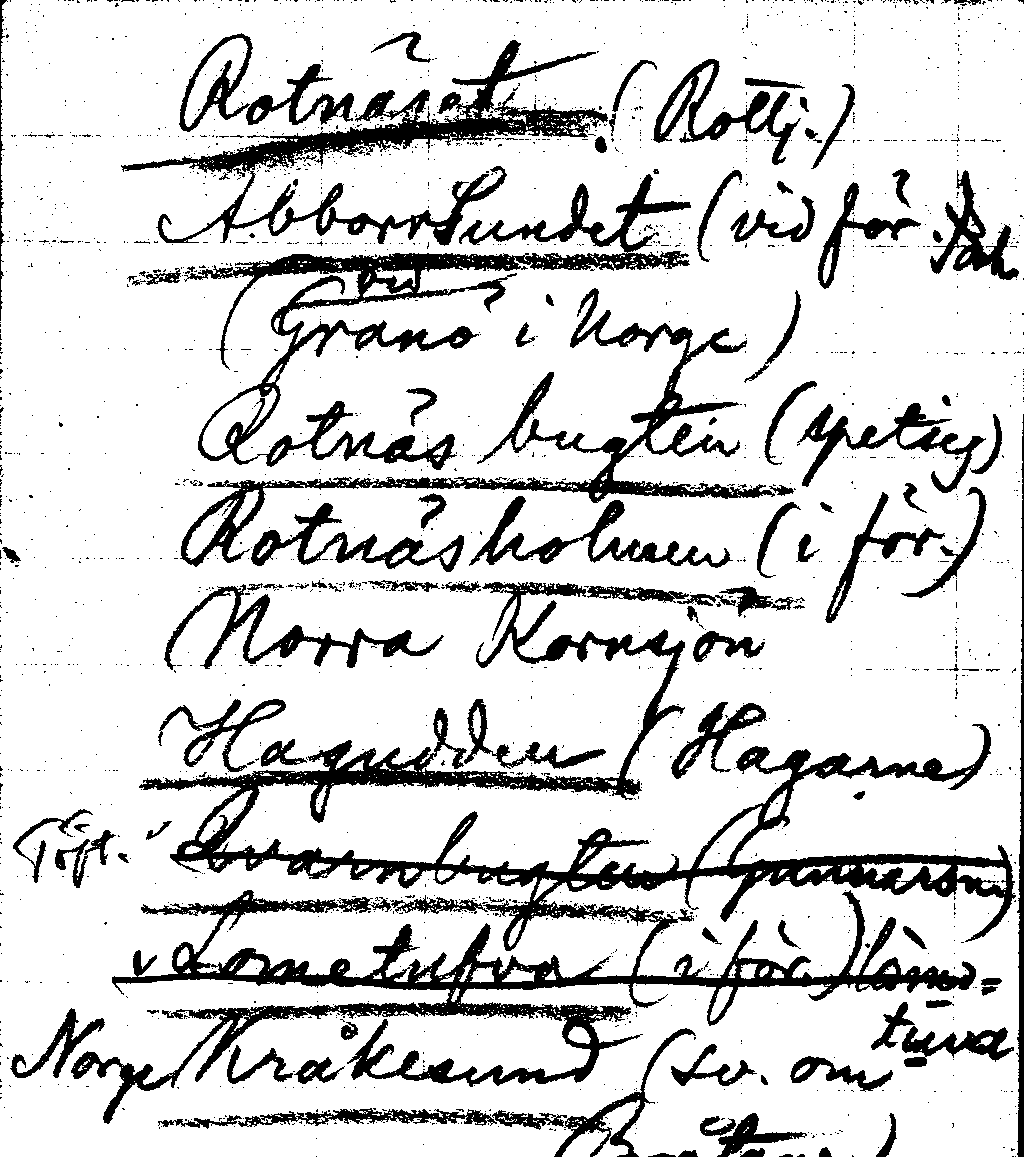 Rotnäset. (Rottj.)
Abborrsundet (vid för.
vid
(Granö i Norge)
Rotnäs bugten (spetsig)
Rotnäsholmen (i för.)
Norra Kornsjön
Hagudden (Hagarne)
Töft. v Qvarnbugten (Gunnarsn)
v Lometufva (i för.) lömo=
tuva
Norge Kråkesund (sv. om